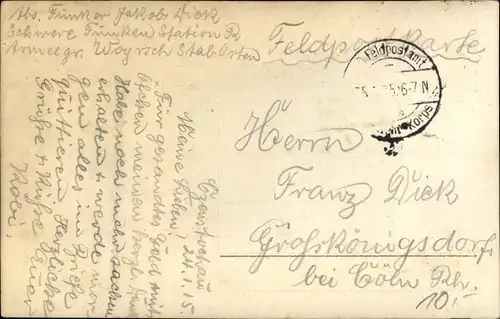 Abs. Funker Jakob Dick
Schwere Funken Station R
Armeegr. Woyrsch Stab Osten
Feldpostkarte
Feldpostamt
5 6-7 N
Korps
Herrn
Franz Dick
Großkönigsdorf
bei Cöln Rh.
10.
Czenstochau
24.1.15.
Meine Lieben!
Für gesandtes Geld mit
meinen herzl. Dank
Habe noch mehr Sachen
erhalten & werde mor
gen alles im Briefe
quittieren. Herzliche
Grüße & Küsse Euer
Köbi.